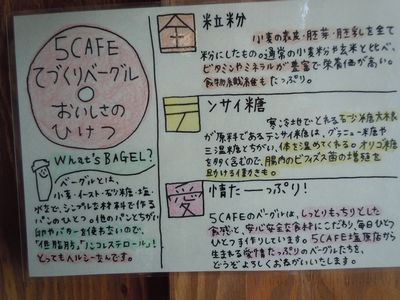 5CAFE
てづくりベーグル
おいしさの
ひけつ
What's BAGEL?
ベーグルとは、
小麦・イースト・砂糖・塩・
水などで、シンプルな材料で作る
パンのひとつ。他のパンとちがい
卵やバターを使わないので、
"低脂肪"、"ノンコレステロール"!
とってもヘルシーなんです。
全粒粉
小麦の表皮・胚芽・胚乳を全て
粉にしたもの。通常の小麦粉や玄米と比べ、
ビタミンやミネラルが豊富で栄養価が高い。
食物繊維もたっぷり。
テンサイ糖
寒冷地でとれる砂糖大根
が原料であるテンサイ糖は、グラニュー糖や
三温糖とちがい、体を温めてくれる。オリゴ糖
を多く含むので、腸内のビフィズス菌の増殖を
助ける働きも。
愛情たーっぷり!
5CAFEのベーグルは、しっとりもっちりとした
食感と、安心安全な材料にこだわり、毎日ひとつ
ひとつ手作りしています。5CAFE塩原店から
生まれる愛情たっぷりのベーグルたちを、
どうぞよろしくおねがいいたします。